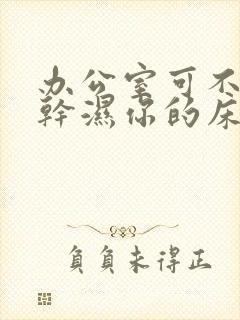 办公室可不
幹濕你的床
負負未得正